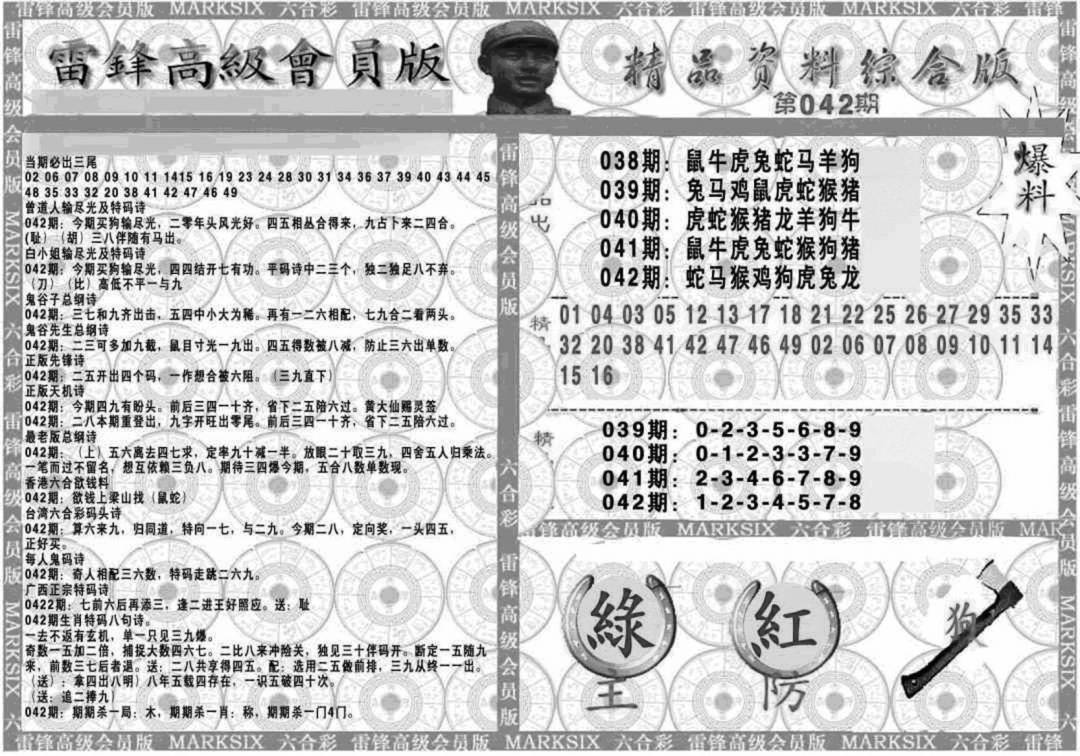 雷锋高级会员版 MARKSIX 六合彩 雷锋高级会员版 MARKSIX 六合彩 雷锋高级会员版 MARKSIX 六合彩 雷锋
雷鋒高級會員版
精品资料综合版
第042期
爆料
当期必出三尾
02 06 07 08 09 10 11 1415 16 19 23 24 28 30 31 34 36 37 39 40 43 44 45
48 35 33 32 20 38 41 42 47 46 49
曾道人输尽光及特码诗
042期：今期买狗输尽光，二零年头风光好。四五相品合得来，九占卜来二四合。
(耻）（胡）三八伴随有马出。
白小姐输尽光及特码诗
042期：今期买狗输尽光，四四结开七有功。平码诗中二三个，独二独足八不弃。
（刀）（比）高低不平一与九
鬼谷子总纲诗
042期：三七和九齐出击，五四中小大为稀。再有一二六相配，七九合二看两头。
鬼谷先生总纲诗
042期：二三可多加九载，鼠目寸光一九出。四五得数被八减，防止三六出单数。
正版先锋诗
042期：二五开出四个码，一作想合被六阻。（三九直下）
正版天机诗
042期：今期四九有盼头。前后三四一十齐，省下二五陪六过。黄大仙赐灵签
042期：二八本期重登出，九字开旺出零尾。前后三四一十齐，省下二五陪六过。
最老版总纲诗
042期：（上）五六离去四七求，定率九十减一半。放眼二十取三九，四舍五人归乘法。
一笔而过不留名，想互依赖三负八。期待三四爆今期，五合八数单数现。
香港六合欲钱料
042期：欲钱上梁山找（鼠蛇）
台湾六合彩码头诗
042期：算六来九，归同道，特向一七，与二九。今期二八，定向奖，一头四五，
正好买。
每人鬼码诗
042期：奇人相配三六数，特码走跳二六九。
广西正宗特码诗
0422期：七前六后再添三，逢二进王好照应。送：耻
042期生肖特码八句诗。
一去不返有玄机，单一只见三九爆。
奇数一五加二倍，捕捉大数四六七。二比八来冲险关，独见三十伴码开。断定一五随九
来，前数三七后者退。送：二八共享得四五。配：选用二五做前排，三九从终一一出。
（送）：拿四出八明）八年五载四存在，一识五破四十次。
（送：追二捧九）
042期：期期杀一局：木，期期杀一肖：称，期期杀一门4门。
038期：鼠牛虎兔蛇马羊狗
039期：兔马鸡鼠虎蛇猴猪
040期：虎蛇猴猪龙羊狗牛
041期：鼠牛虎兔蛇猴狗猪
042期：蛇马猴鸡狗虎兔龙
精
01 04 03 05 12 13 17 18 21 22 25 26 27 29 35 33
32 20 38 41 42 47 46 49 02 06 07 08 09 10 11 14
15 16
精
039期：0-2-3-5-6-8-9
040期：0-1-2-3-3-7-9
041期：2-3-4-6-7-8-9
042期：1-2-3-4-5-7-8
雷锋高级会员版 MARKSIX 六合彩 雷锋高级会员版 MARK
綠
紅
狗
主
防
雷锋高级会员版 MARKSIX 六合彩 雷锋高级会员版 MARKSIX 六合彩 雷锋高级会员版 MARKSIX 六合彩 雷锋